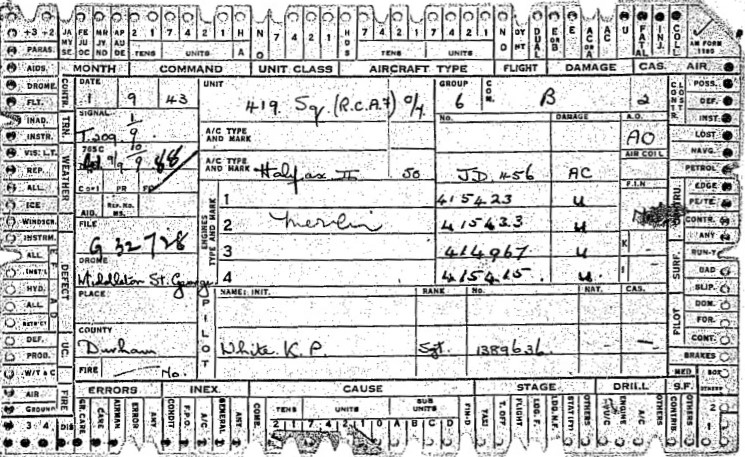 +3 +2 JA MY SE FE JU OC MR JY NO AP AU DE 2 1 7 4 2 1 H NO 7 4 2 1 HDS 7 4 2 1 7 4 2 1 NO DY NT DUAL E OR B E AC OR A AC U FATAL INJ. COLL
PARAS. TENS UNITS A TENS UNITS AM FORM 1180
AIDS. MONTH COMMAND UNIT CLASS AIRCRAFT TYPE FLIGHT DAMAGE CAS. AIR
DROME. CONTR. DATE UNIT GROUP COM. CONTR. LOST POSS.
FLT. 1 9 43 419 Sq. (R.C.A.F) 6 B 2 DEF.
INAD. TRN. SIGNAL No. DAMAGE A.O. INST.
INSTR. T209 9 A/C TYPE AND MARK AO LOST
VIS: L.T. WEATHER 765C 9/9 9/10 88 AIR COIL NAVG.
REP. A/C TYPE AND MARK Halifax II 50 JD 456 AC PETROL
ALL. C OF I PR FP F.I.N EDGE
ICE AID. REP. NO. MS. ENGINES TYPE AND MARK 1 415423 U CONSTRU. PE/TE.
WINDSCR. FILE 2 Merlin 415433 U CONTR.
INSTRM. G 32728 3 414967 U K ANY
ALL DEFECT DROME 4 415415 U I SURF. RUN-Y
INST'L Middleton St. George BAD
HYD. PLACE PILOT NAME: INIT. RANK No. NAT. CAS. PILOT SLIP.
ALL DOM.
RETRCT COUNTY FOR.
DEF. UC. Durham White. K. P. Sgt. 1389636 — CONT.
PROD. FIRE — No. BRAKES
W/T & C ERRORS INEX. CAUSE STAGE DRILL S.F. MED BOF OTHERS
AIR FIRE GR. CARE CARE AIRMAN ERROR ANY CONDIT F.P.O. A/C GENERAL ANY COMB. TENS UNITS SUB UNITS FIN-D TAXI T. OFF FLIGHT LDG. F. LDG. N.F. STAT (FT) OTHERS ENGINE A/C OTHERS CONTRIB OTHERS 2
GROUND 2 1 7 4 2 1 0 A B C D 1
3 4 DIS